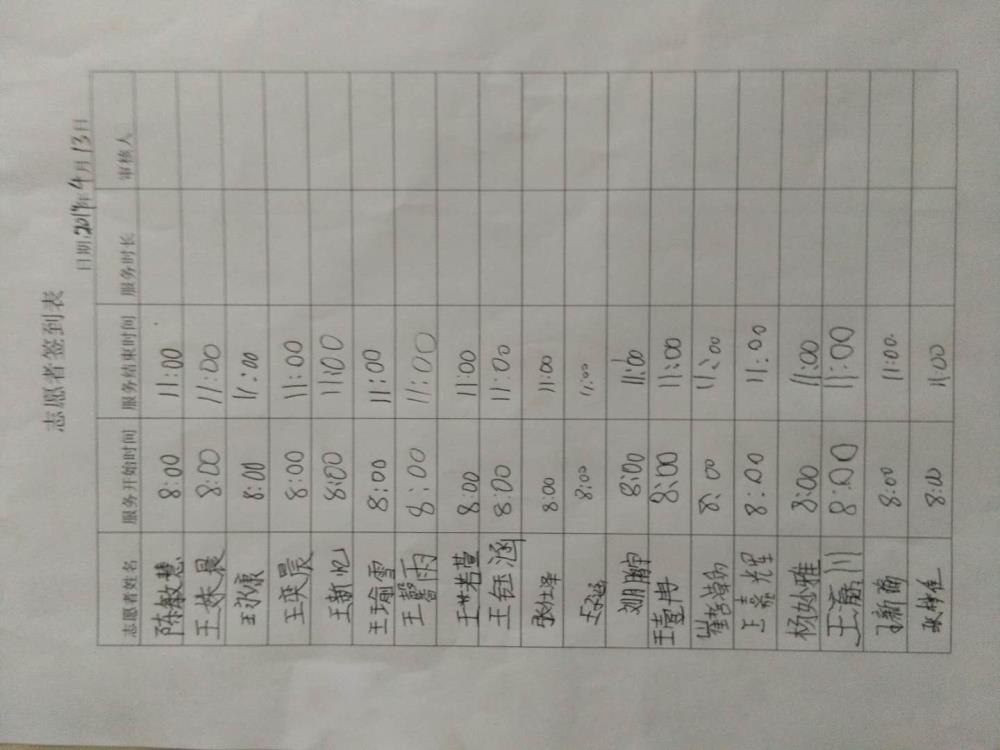 志愿者签到表
日期:2019年4月13日
志愿者姓名 服务开始时间 服务结束时间 服务时长 审核人
陈敏慧 8:00 11:00
王姝晨 8:00 11:00
王永康 8:00 11:00
王奕晨 8:00 11:00
王新忆 8:00 11:00
王瑜雪 8:00 11:00
王馨雨 8:00 11:00
王若萱 8:00 11:00
王钰涵 8:00 11:00
张仕泽 8:00 11:00
王 8:00 11:00
刘月鹏 8:00 11:00
王壹冉 8:00 11:00
崔 8:00 11:00
王鑫辉 8:00 11:00
杨妙雅 8:00 11:00
王灏川 8:00 11:00
王新茜 8:00 11:00
张梓佳 8:00 11:00